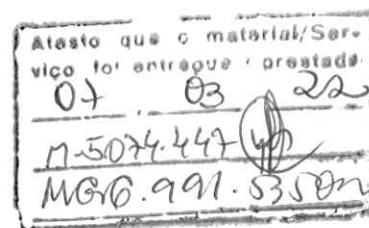 Atesto que o material/Ser-
viço foi entregue / prestado.
07 03 22
M-5074.447
MG6.991.535